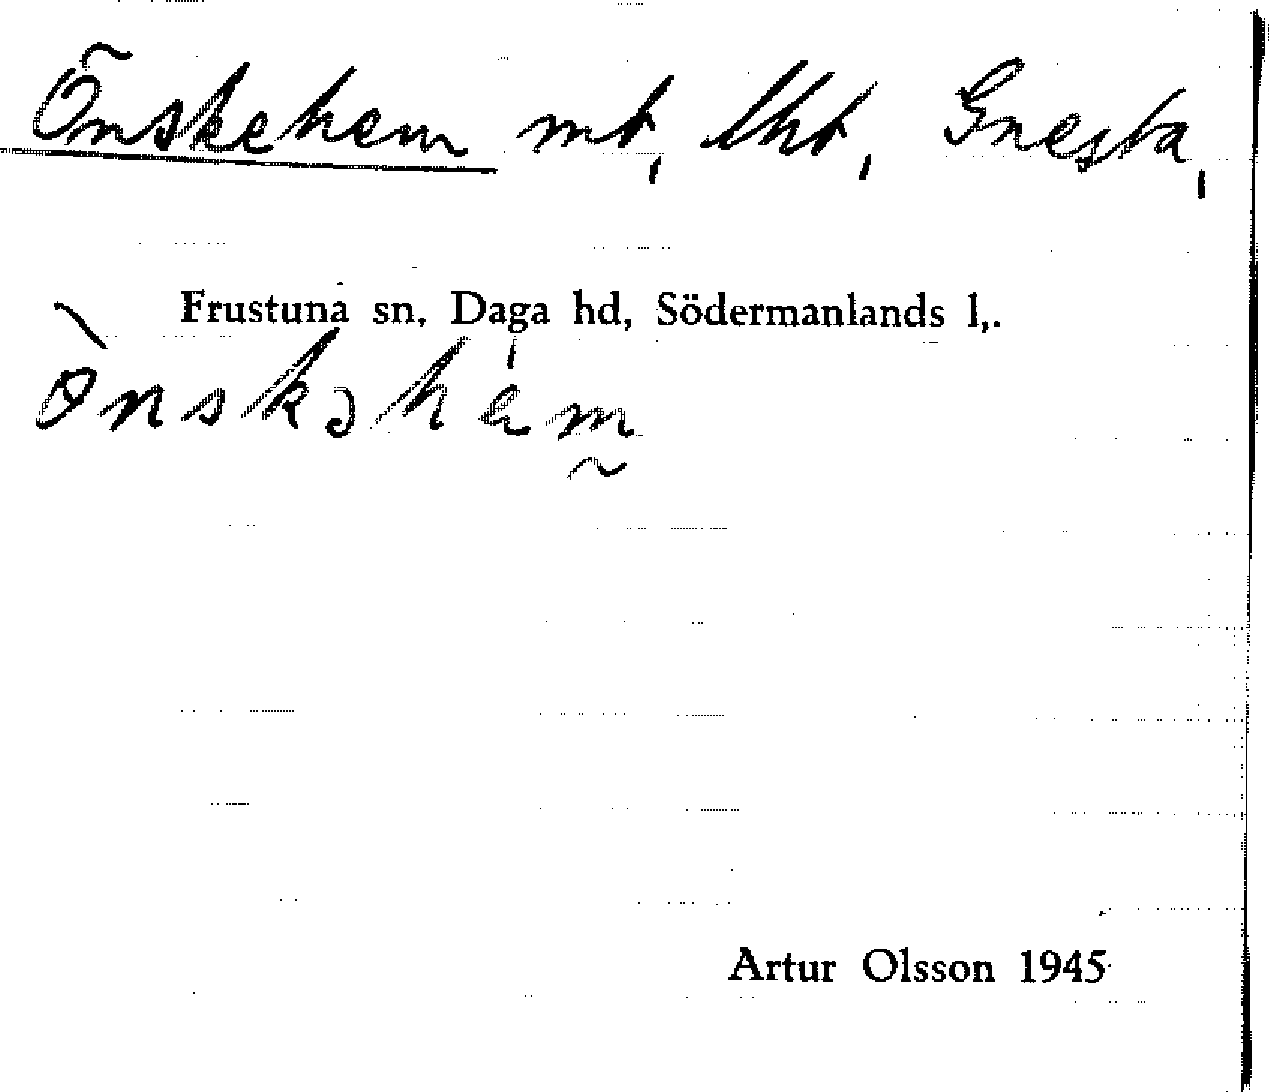 Önskehem mt, lht, Gnesta,
Frustuna sn, Daga hd, Södermanlands l,.
ò̀nskəhé̱m̰
Artur Olsson 1945